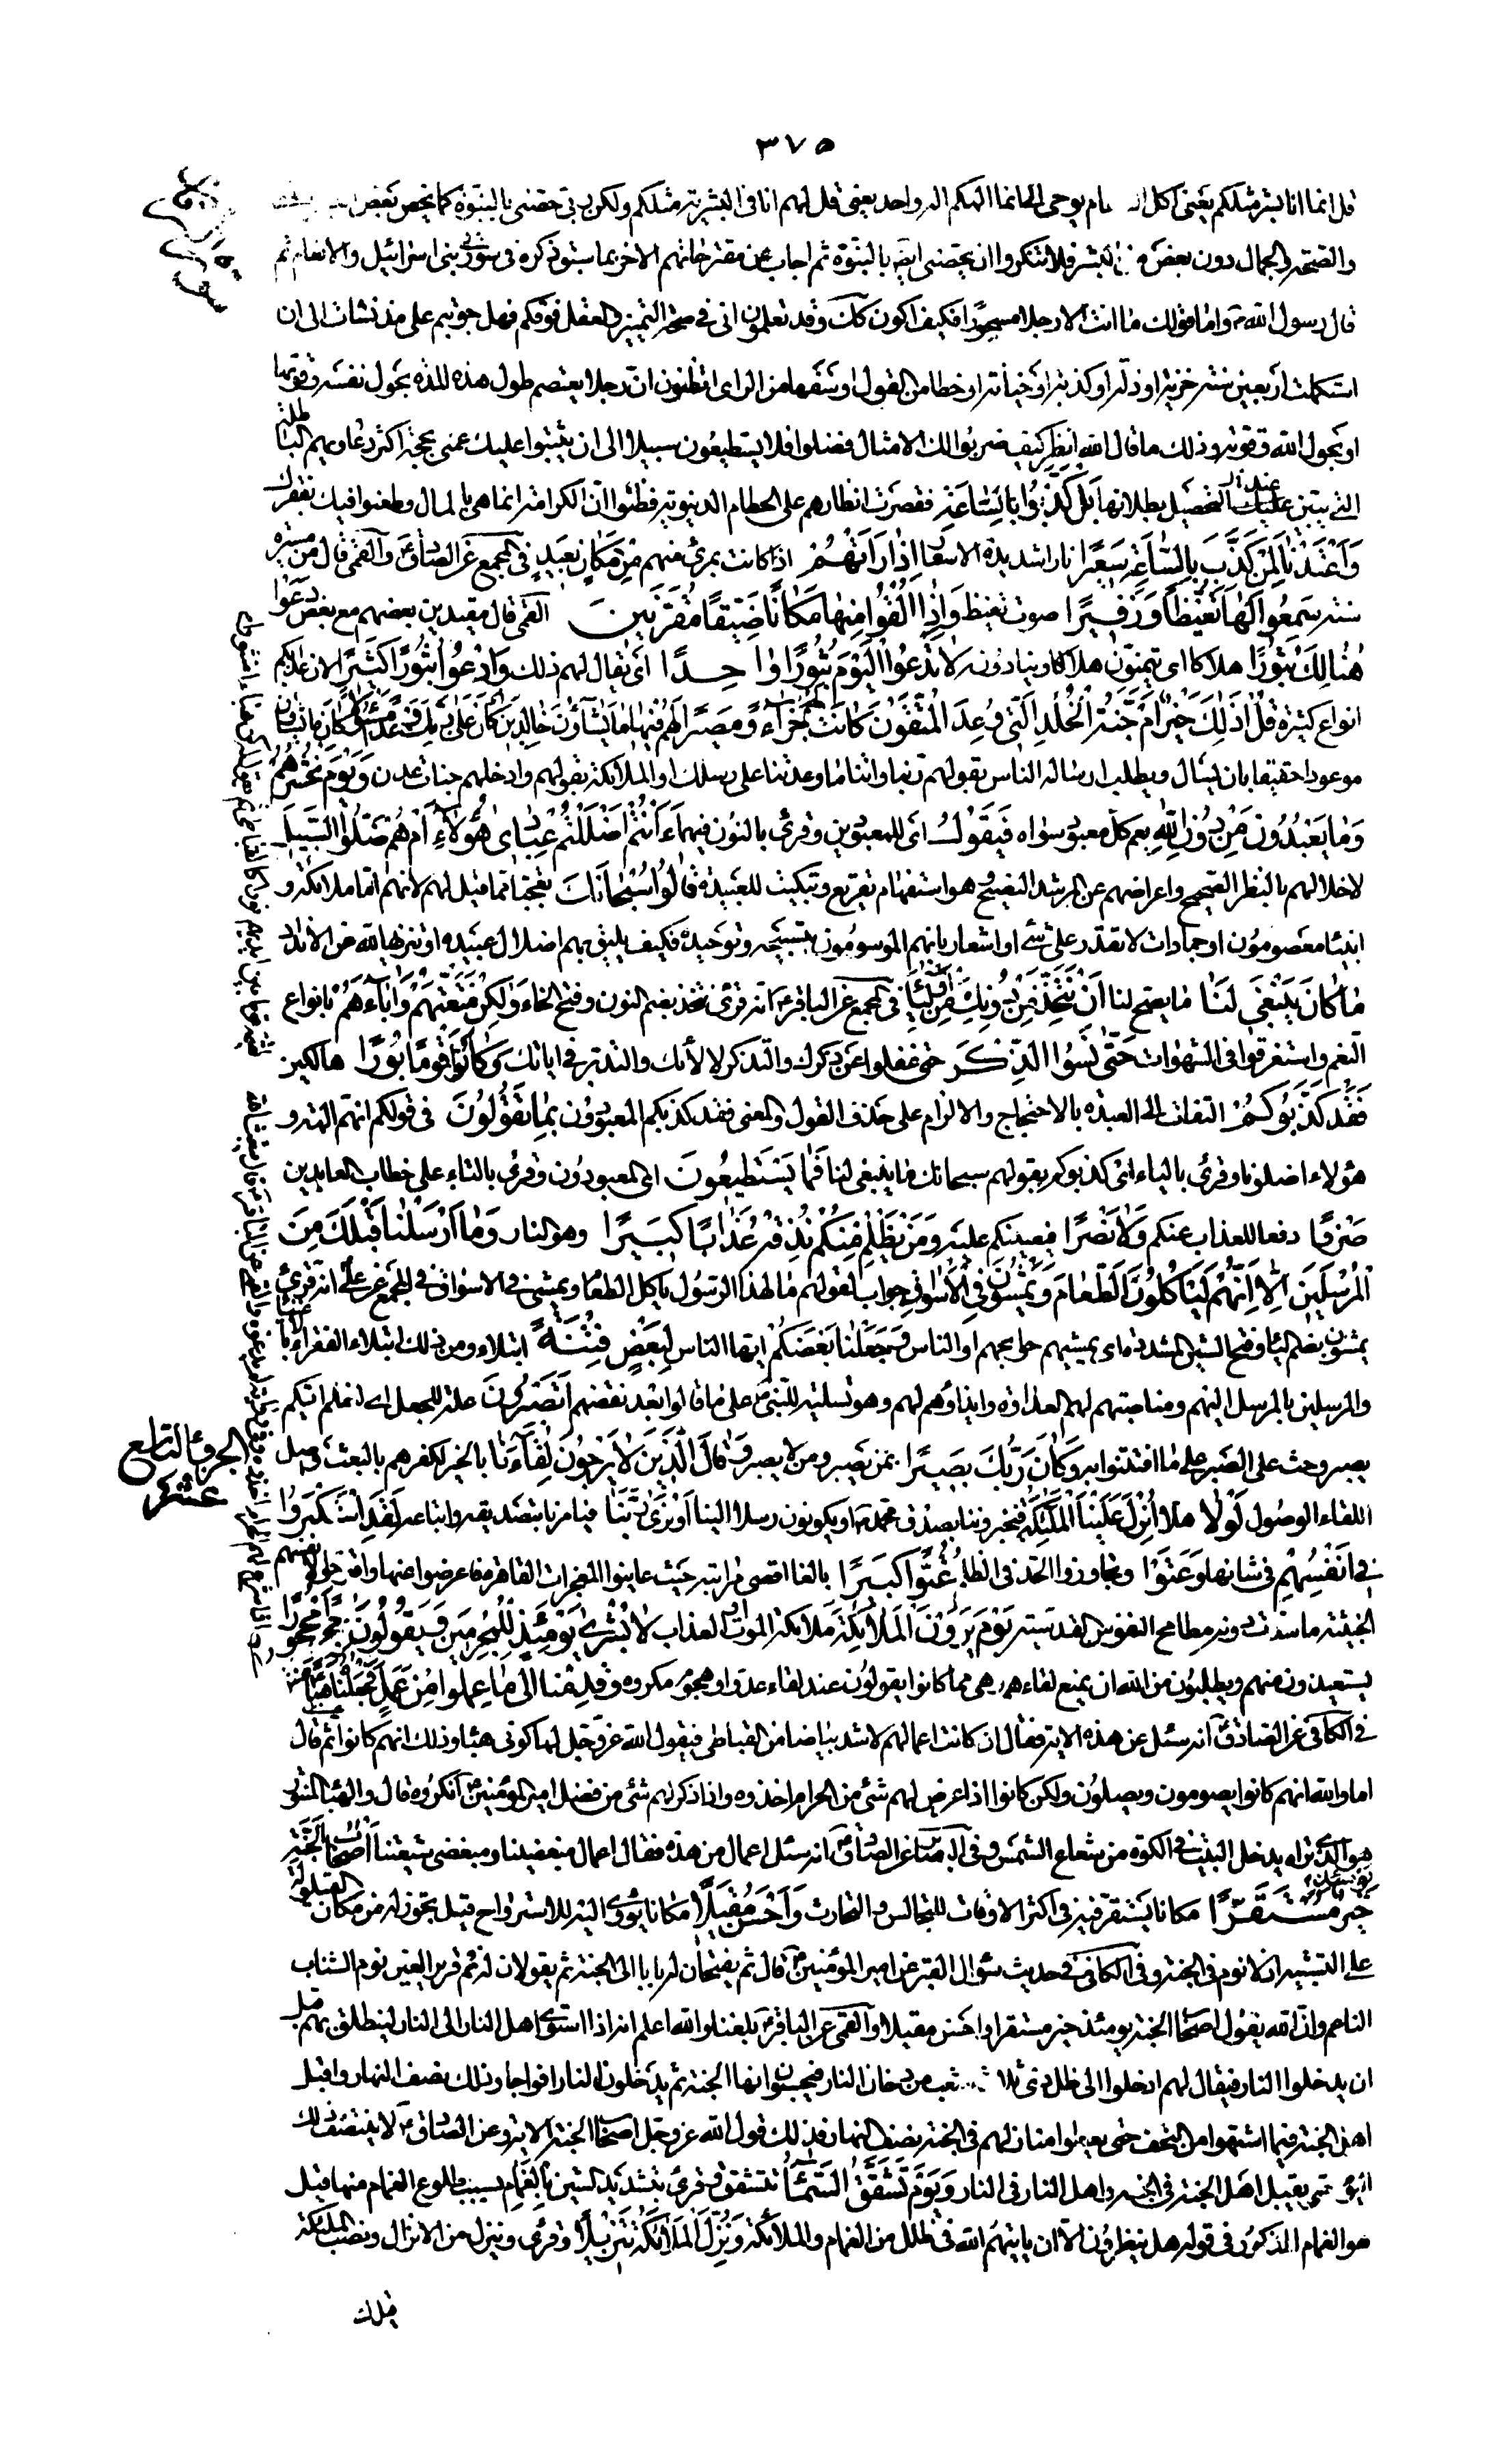 ٣٧٥
قل انما انا بشر مثلكم يعنى اكل الطعام يوحى الى انما الهكم اله واحد يعنى قل لهم انا فى البشرية مثلكم ولكن ربى خصنى بالنبوة كما يخص بعض
والصحة والجمال دون بعض من البشر فلا تنكروا ان يخصنى ايضا بالنبوة ثم اجاب عن مقترحاتهم الاخر بما سبق ذكره فى سورتى بنى اسرائيل والانعام ثم
قال رسول الله ص واما قولك ما انت الا رجلا مسحورا فكيف اكون كك وقد تعلمون انى فى صحة التميز والعقل فوقكم فهل جربتم على مذ نشات الى ان
استكملت اربعين سنة خزية او زلة او كذبة او خيانة او خطا من القول او سفها من الراى اتظنون ان رجلا يعتصم طول هذه المدة بحول نفسه وقوتها
او بحول الله وقوته وذلك ما قال الله انظر كيف ضربوا لك الامثال فضلوا فلا يستطيعون سبيلا الى ان يثبتوا عليك عمى بحجة اكثر دعاويهم الباطلة
التى يتبين عليك عند التحصيل بطلانها بل كذبوا بالساعة فقصرت انظارهم على الحطام الدنيوية فظنوا ان الكرامة انما هى بالمال وطعنوا فيك بفقرك
وَاَعْتَدْنا لِمَنْ كَذَّبَ بِالسّاعَةِ سَعيرًا نارا شديدة الاسعار اِذا رَاَتْهُمْ اذا كانت بمرئ منهم مِنْ مَكانٍ بَعيدٍ فى المجمع عن الصادق ع والقمى قال من مسيرة
سنة سَمِعُوا لَها تَغَيُّظًا وَزَفيرًا صوت تغيظ وَاِذا اُلْقُوا مِنْها مَكانًا ضَيِّقًا مُقَرَّنينَ القمى قال مقيدين بعضهم مع بعض دَعَوْا
هُنالِكَ ثُبُورًا هلاكا اى يتمنون هلاكا وينادونه لا تَدْعُوا الْيَوْمَ ثُبُورًا واحِدًا اى يقال لهم ذلك وَادْعُوا ثُبُورًا كَثيرًا لان عذابكم
انواع كثيرة قُلْ اَذلِكَ خَيْرٌ اَمْ جَنَّةُ الْخُلْدِ الَّتى وُعِدَ الْمُتَّقُونَ كانَتْ لَهُمْ جَزاءً وَمَصيرًا لَهُمْ فيها ما يَشاؤُنَ خالِدينَ كانَ عَلى رَبِّكَ وَعْدًا مَسْئُولًا كان ما يشاؤن
موعودا حقيقا بان يسال ويطلب او ساله الناس بقولهم ربنا واتنا ما وعدتنا على رسلك او الملائكة بقولهم وادخلهم جنات عدن وَيَوْمَ يَحْشُرُهُمْ
وَما يَعْبُدُونَ مِنْ دُونِ اللهِ يعم كل معبود سواه فَيَقُولُ اى للمعبودين وقرئ بالنون فيهما ءَاَنْتُمْ اَضْلَلْتُمْ عِبادى هؤُلاءِ اَمْ هُمْ ضَلُّوا السَّبيلَ
لاخلالهم بالنظر الصحيح واعراضهم عن المرشد النصيح وهو استفهام تقريع وتبكيت للعبيدة قالُوا سُبْحانَكَ تعجبا مما قيل لهم لانهم اما ملائكة و
انبياء معصومون او جمادات لا تقدر على شئ او اشعارا بانهم الموسومون بتسبيحه وتوحيده فكيف يليق بهم اضلال عبيده او تنزيها لله عن الانداد
ما كانَ يَنْبَغى لَنا ما يصح لنا اَنْ نَتَّخِذَ مِنْ دُونِكَ مِنْ اَوْلِياءَ فى المجمع عن الباقر ع انه قرئ نتخذ بضم النون وفتح الخاء وَلكِنْ مَتَّعْتَهُمْ وَاباءَهُمْ بانواع
النعم واستغرقوا فى الشهوات حَتّى نَسُوا الذِّكْرَ حتى غفلوا عن ذكرك والتذكر لالائك والتدبر فى اياتك وَكانُوا قَوْمًا بُورًا هالكين
فَقَدْ كَذَّبُوكُمْ التفات الى العبدة بالاحتجاج والالزام على حذف القول والمعنى فقد كذبكم المعبودون بِما تَقُولُونَ فى قولكم انهم الهة و
هؤلاء اضلونا وقرئ بالياء اى كذبوكم بقولهم سبحانك ما ينبغى لنا فَما يَسْتَطيعُونَ اى المعبودون وقرئ بالتاء على خطاب العابدين
صَرْفًا دفعا للعذاب عنكم وَلا نَصْرًا فيعينكم عليه وَمَنْ يَظْلِمْ مِنْكُمْ نُذِقْهُ عَذابًا كَبيرًا وهو النار وَما اَرْسَلْنا قَبْلَكَ مِنَ
الْمُرْسَلينَ اِلّا اِنَّهُمْ لَيَاْكُلُونَ الطَّعامَ وَيَمْشُونَ فِى الْاَسْواقِ جواب لقولهم ما لهذا الرسول ياكل الطعام ويمشى فى الاسواق فى المجمع عن على ع انه قرئ
يمشون بضم الياء وفتح الشين المشددة اى يمشيهم حوائجهم او الناس وَجَعَلْنا بَعْضَكُمْ ايها الناس لِبَعْضٍ فِتْنَةً ابتلاء ومن ذلك ابتلاء الفقراء بالاغنياء
والمرسلين بالمرسل اليهم ومناصبتهم لهم العداوة وايذاؤهم لهم وهو تسلية للنبى ص على ما قالوا بعد نقضهم اَتَصْبِرُونَ علة للجعل اى لنعلم ايكم
يصبر وحث على الصبر على ما افتتنوا به وَكانَ رَبُّكَ بَصيرًا بمن يصبر ومن لا يصبر وَقالَ الَّذينَ لا يَرْجُونَ لِقاءَنا بالخير لكفرهم بالبعث واصل
اللقاء الوصول لَوْلا هلا اُنْزِلَ عَلَيْنَا الْمَلئِكَةُ فيخبروننا بصدق محمد ص او يكونون رسلا الينا اَوْ نَرى رَبَّنا فيامرنا بتصديقه واتباعه لَقَدِ اسْتَكْبَرُوا
فى اَنْفُسِهِمْ فى شانها وَعَتَوْا وتجاوزوا الحد فى الظلم عُتُوًّا كَبيرًا بالغا اقصى مراتبه حيث عاينوا المعجزات القاهرة فاعرضوا عنها واقترحوا لانفسهم
الخبيثة ما سدت دونه مطامح النفوس القدسية يَوْمَ يَرَوْنَ الْمَلائِكَةَ ملائكة الموت او العذاب لا بُشْرى يَوْمَئِذٍ لِلْمُجْرِمينَ وَيَقُولُونَ حِجْرًا مَحْجُورًا
يستعيذون منهم ويطلبون من الله ان يمنع لقاءهم وهى مما كانوا يقولون عند لقاء عدو او هجوم مكروه وَقَدِمْنا اِلى ما عَمِلُوا مِنْ عَمَلٍ فَجَعَلْناهُ هَباءً مَنْثُورًا
فى الكافى عن الصادق ع انه سئل عن هذه الاية فقال ان كانت اعمالهم لاشد بياضا من القباطى فيقول الله عز وجل لها كونى هباء وذلك انهم كانوا ثم قال
اما والله انهم كانوا يصومون ويصلون ولكن كانوا اذا عرض لهم شئ من الحرام اخذوه واذا ذكر لهم شئ من فضل امير المؤمنين ع انكروه قال والهباء المنثور
هو الذى تراه يدخل البيت فى الكوة من شعاع الشمس وفى البصائر عن الصادق ع انه سئل اعمال من هذه فقال اعمال مبغضينا ومبغضى شيعتنا اَصْحابُ الْجَنَّةِ يَوْمَئِذٍ
خَيْرٌ مُسْتَقَرًّا مكانا يستقر فيه فى اكثر الاوقات للتجالس والتحادث وَاَحْسَنُ مَقيلًا مكانا يؤوى اليه للاسترواح قيل تجوز له من مكان القيلولة
على التشبيه اذ لا نوم فى الجنة وفى الكافى فى حديث سؤال القبر عن امير المؤمنين ع قال ثم يفتحان له بابا الى الجنة ثم يقولان له نم قرير العين نوم الشاب
الناعم وان الله يقول اصحاب الجنة يومئذ خير مستقرا واحسن مقيلا والقمى عن الباقر ع بلغنا والله اعلم انه اذا استوى اهل النار الى النار لينطلق بهم قبل
ان يدخلوا النار فيقال لهم ادخلوا الى ظل ذى ثلاث شعب من دخان النار فيحسبون انها الجنة ثم يدخلون النار افواجا وذلك نصف النهار واقبل
اهل الجنة فيما اشتهوا من التحف حتى يعطوا منازلهم فى الجنة نصف النهار فذلك قول الله عز وجل اصحاب الجنة الاية وعن الصادق ع لا ينتصف ذلك
اليوم حتى يقيل اهل الجنة فى الجنة واهل النار فى النار وَيَوْمَ تَشَقَّقُ السَّماءُ تتشقق وقرئ بتشديد الشين بِالْغَمامِ بسبب طلوع الغمام منها قيل
هو الغمام المذكور فى قوله هل ينظرون الا ان ياتيهم الله فى ظلل من الغمام والملائكة وَنُزِّلَ الْمَلائِكَةُ تَنْزيلًا وقرئ وننزل من الانزال ونصب الملئكة
الجزؤ التاسع
عشر